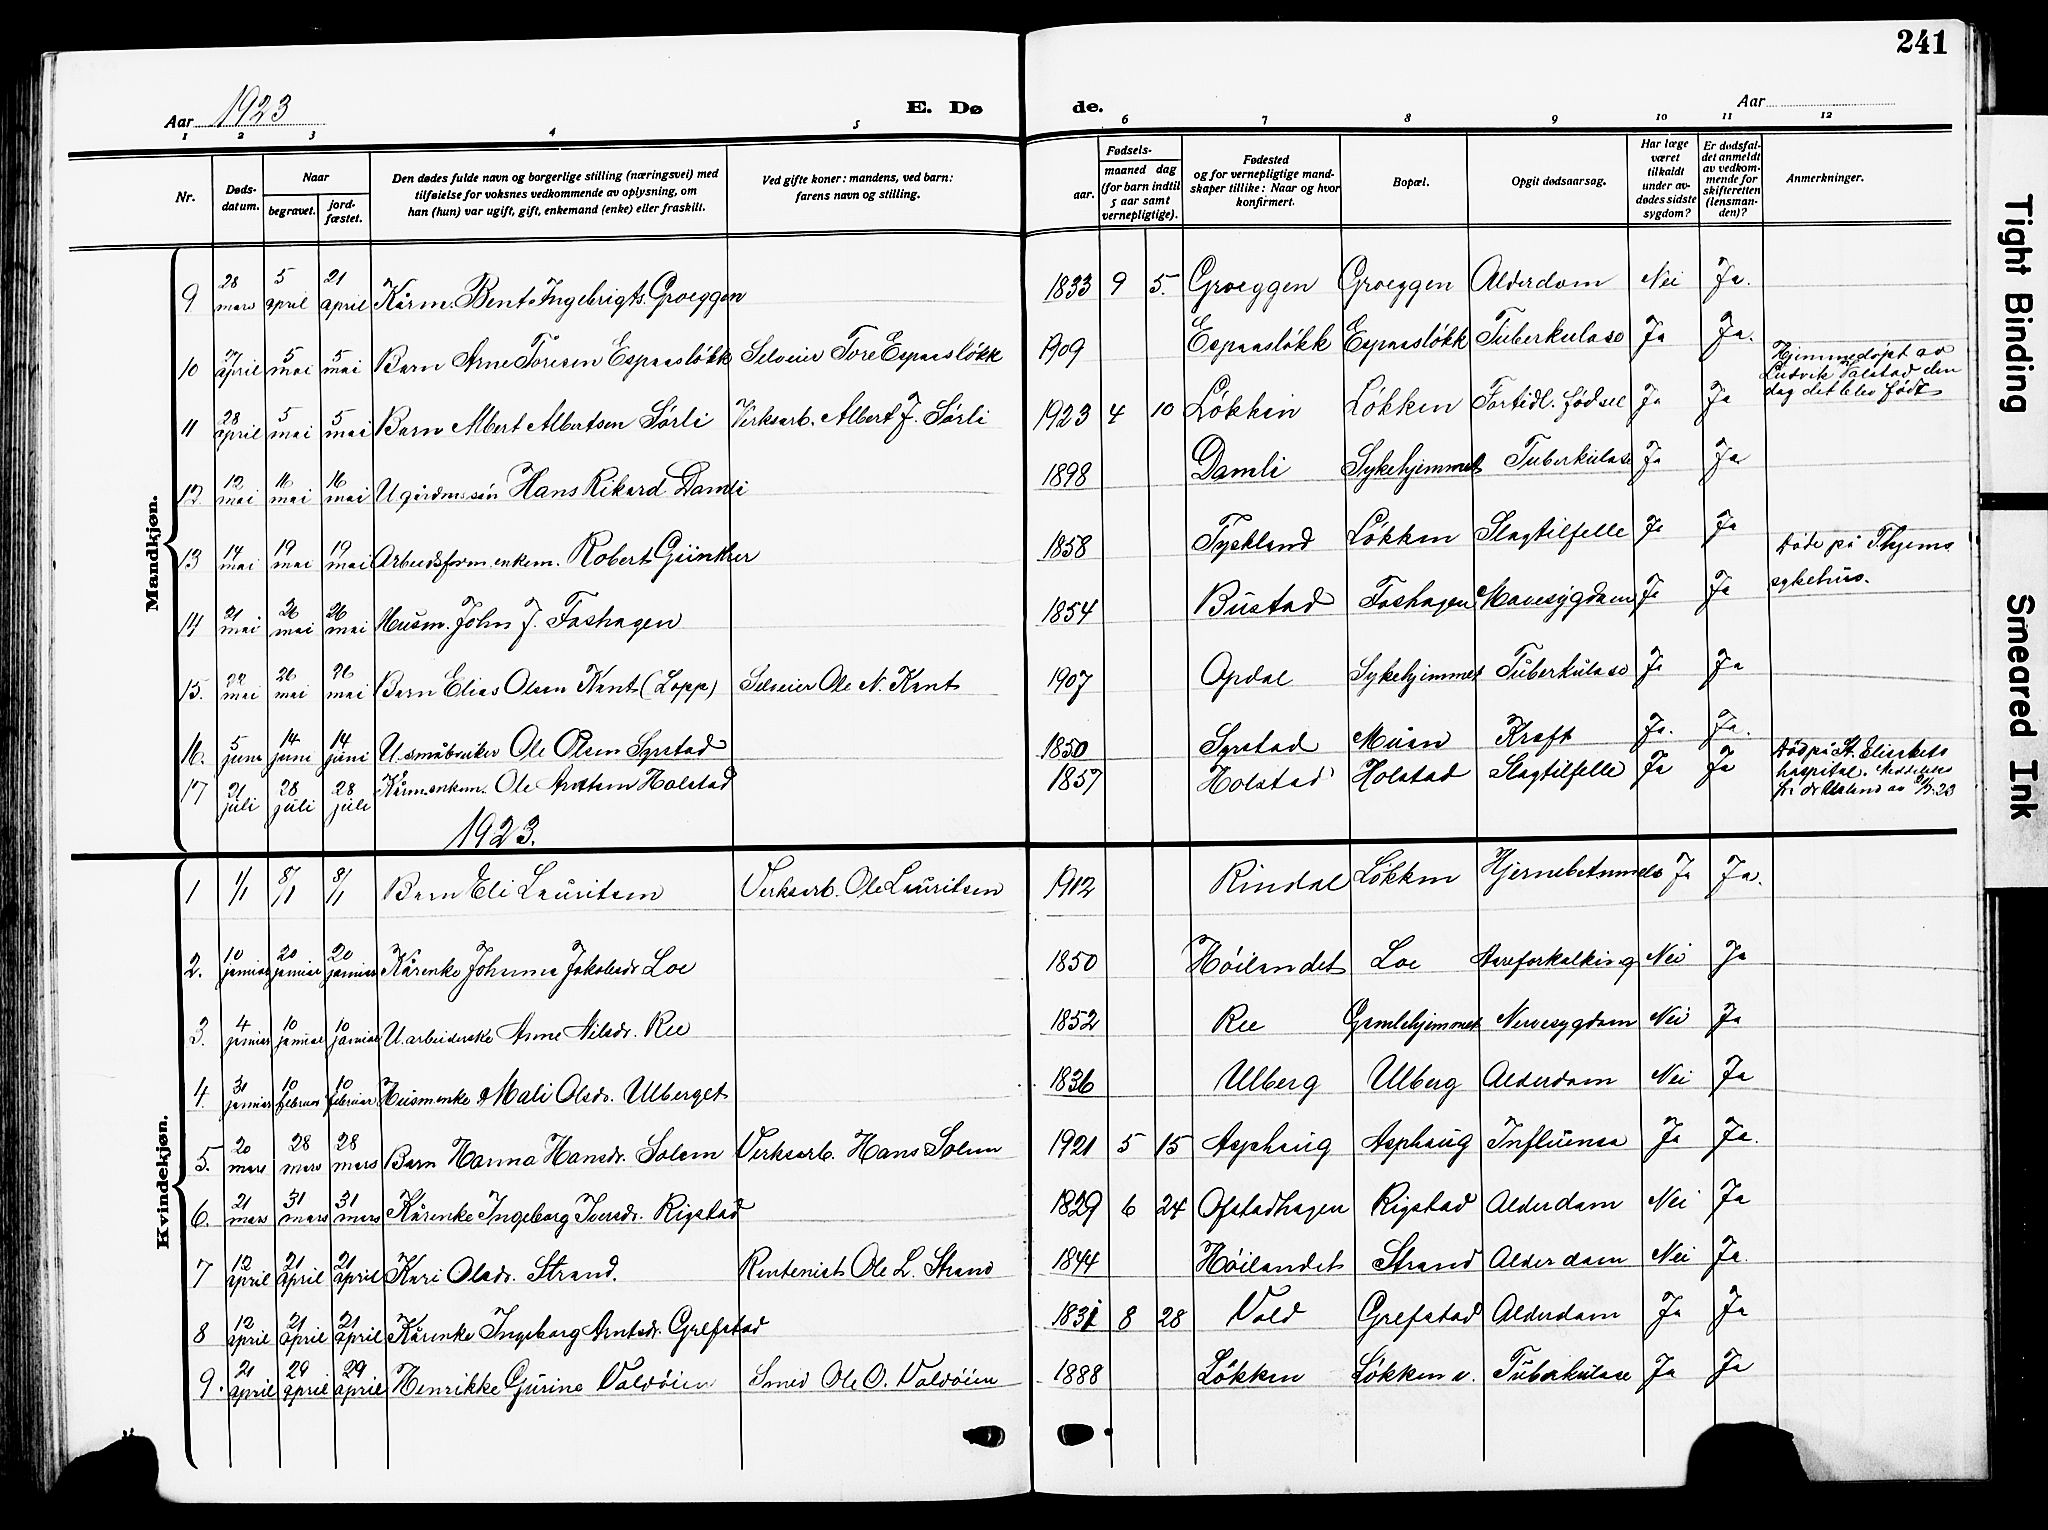 241
Aar 1923
E. Dø
de.
Aar
1 2 3 4 5 6 7 8 9 10 11 12
Nr.
Døds-
datum.
Naar
begravet.
jord-
fæstet.
Den dødes fulde navn og borgerlige stilling (næringsvei) med
tilføielse for voksnes vedkommende av oplysning, om
han (hun) var ugift, gift, enkemand (enke) eller fraskilt.
Ved gifte koner: mandens, ved barn:
farens navn og stilling.
Fødsels-
aar.
maaned dag
(for barn indtil
5 aar samt
vernepligtige).
Fødested
og for vernepligtige mand-
skaper tillike: Naar og hvor
konfirmert.
Bopæl.
Opgit dødsaarsag.
Har læge
været
tilkaldt
under av-
dødes sidste
sygdom?
Er dødsfal-
det anmeldt
av vedkom-
mende for
skifteretten
(lensman-
den)?
Anmerkninger.
Mandkjøn.
9 28 mars 5 april 21 april Kårm. Bent Ingebrigts. Groeggen 1833 9 5. Groeggen Groeggen Alderdom Nei Ja.
10 april 5 mai 5 mai Barn Arne Toresen Espaasløkk Selveier Tore Espaasløkk 1909 Espaasløkk Espaasløkk Tuberkulose Ja Ja.
11 28 april 5 mai 5 mai Barn Albert Albertsen Sørli Verksarb. Albert J. Sørli 1923 4 10 Løkken Løkken Fortidl. fødsel Ja Ja Hjemmedøpt av
Ludvik Valstad den
dag det blev født
12. 12 mai 16 mai 16 mai U. gårdmssøn Hans Rikard Damli 1898 Damli Sykehjemmet Tuberkulose Ja Ja
13 14 mai 19 mai 19 mai Arbeidsform. enkem. Robert Günther 1858 Tyskland Løkken Slagtilfelle Ja Ja
14 21 mai 26 mai 26 mai Husm. John J. Foshagen 1854 Bustad Foshagen Mavesygdom Ja Ja Døde på Thjems
sykehus.
15. 22 mai 26 mai 26 mai Barn Elias Olsen Kant (Lopp) Selveier Ole N. Kant 1907 Opdal Sykehjemmet Tuberkulose Ja Ja
16. 5 juni 14 juni 14 juni U. småbruker Ole Olsen Syrstad 1850 Syrstad Muan Kræft Ja. Ja.
17 21 juli 28 juli 28 juli Kårm. enkem. Ole Arntsen Holstad 1857 Holstad Holstad Slagtilfelle Ja Ja Død på St. Elisabets
hospital.
1923.
Kvindekjøn.
1 1/1 8/1 8/1 Barn Eli Lauritsen Verksarb. Ole Lauritsen 1912 Rindal Løkken Hjernebetændels Ja Ja.
2. 10 januar 20 januar 20 januar Kårenke Johanna Jakobsdr Loe 1850 Høilandet Loe Aareforkalking Nei Ja
3. 4 januar 10 januar 10 januar U. arbeiderske Anne Nilsdr. Ree 1852 Ree Gamlehjemmet Nervesygdom Nei Ja
4. 31 januar 10 februar 10 februar Husmenke Mali Olsdr. Ulberget 1836 Ulberg Ulberg Alderdom Nei Ja
5. 20 mars 28 mars 28 mars Barn Hanna Hansdr. Solem Verksarb. Hans Solem 1921 5 15 Asphaug Asphaug Influensa Ja Ja.
6. 21 mars 31 mars 31 mars Kårenke Ingeborg Iversdr. Rigstad 1829 6 24 Ofstadhagen Rigstad Alderdom Nei Ja
7 12 april 21 april 21 april Kari Olsdr. Strand. Rentenist Ole L. Strand 1844 Høilandet Strand Alderdom Nei Ja.
8 12 april 21 april 21 april Kårenke Ingeborg Arntsdr. Grefstad 1831 8 28 Vold Grefstad Alderdom Ja Ja
9. 21 april 29 april 29 april Henrikke Gurine Valdøien Smed Ole O. Valdøien 1888 Løkken Løkken v. Tuberkulose Ja Ja
Tight Binding
Smeared Ink